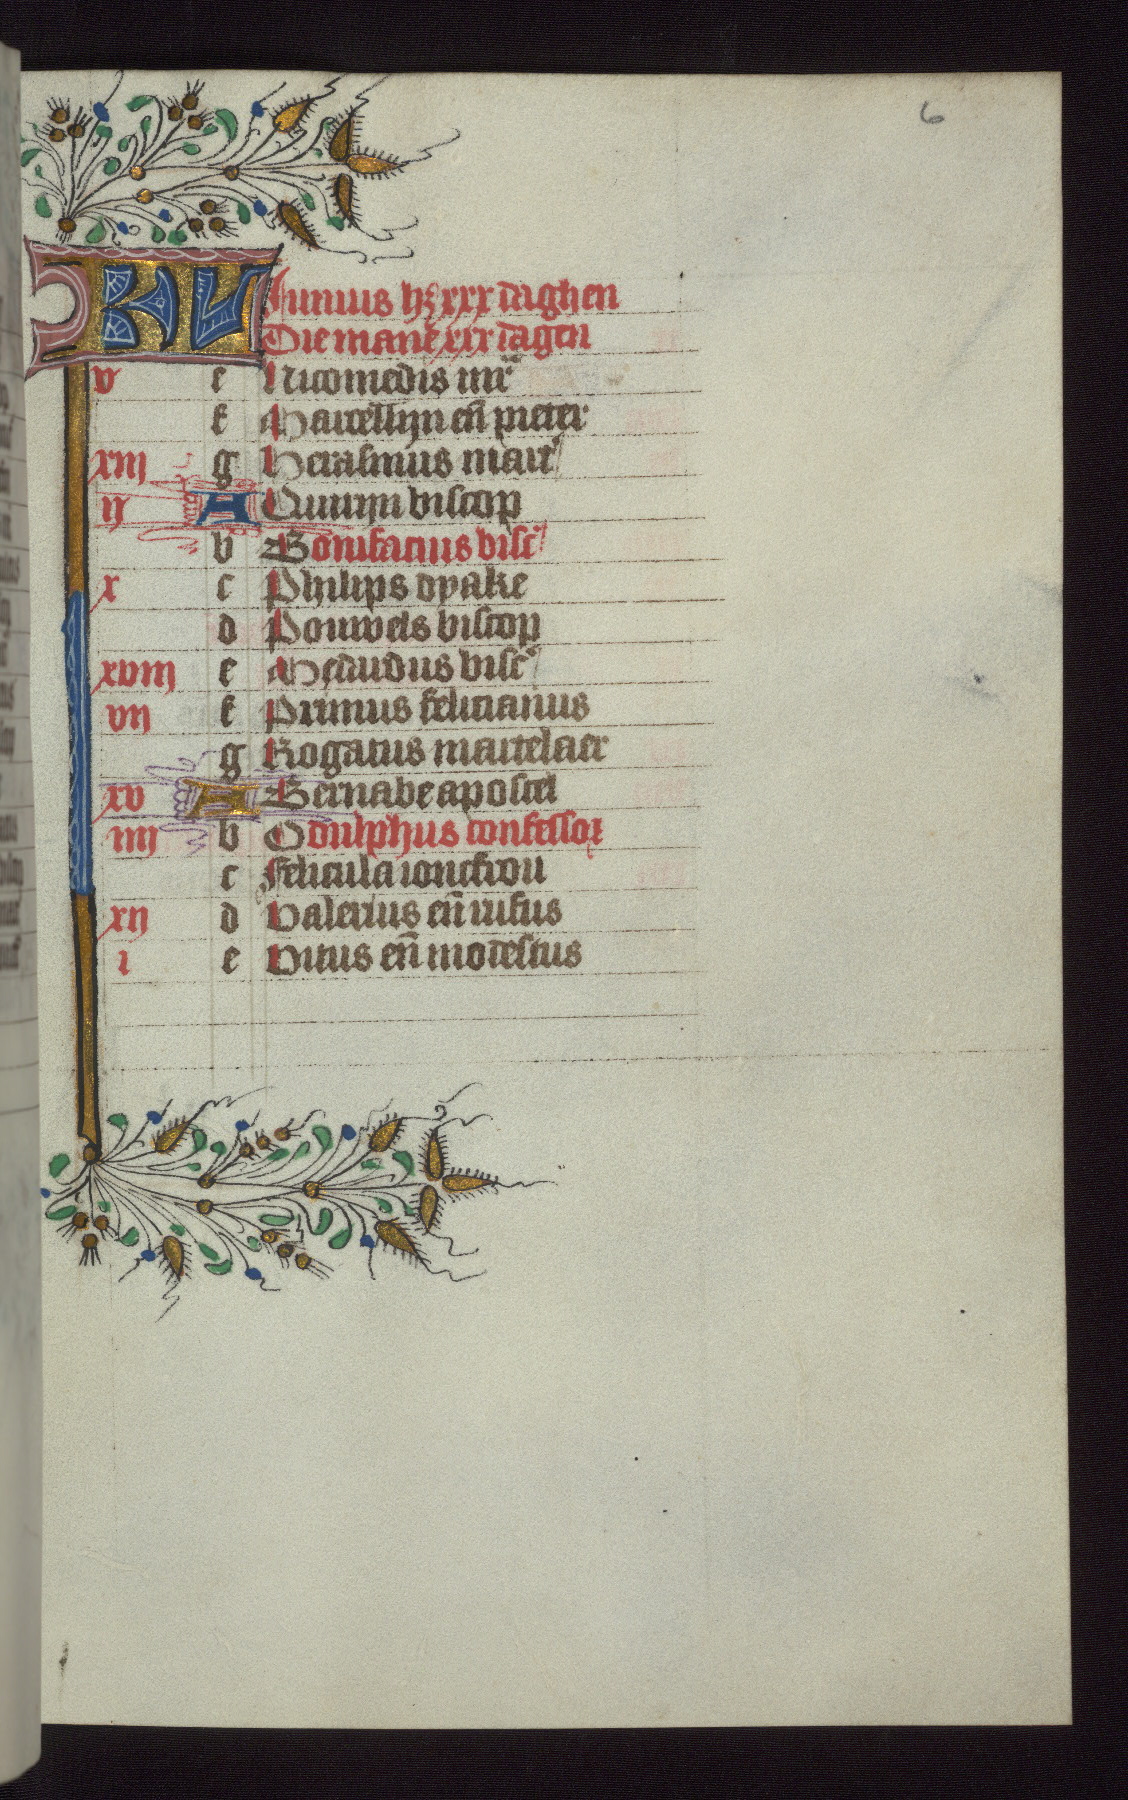 6
KL Junius hꝫ xxx daghen
Die mane xix dagen
v e Nicomedis mr
f Marcellijn eñ pieter
xiij g Herasmus mart
ij A Quirijn biscop
b Bonifacius bisc
x c Philips dyake
d Pouwels biscop
xviij e Medardus bisc
vij f Primus felicianus
g Rogatus martelaer
xv A Bernabe apostel
iiij b Odulphus confessor
c Felicula ioncfrou
xij d Valerius eñ rufus
i e Vitus eñ modestus